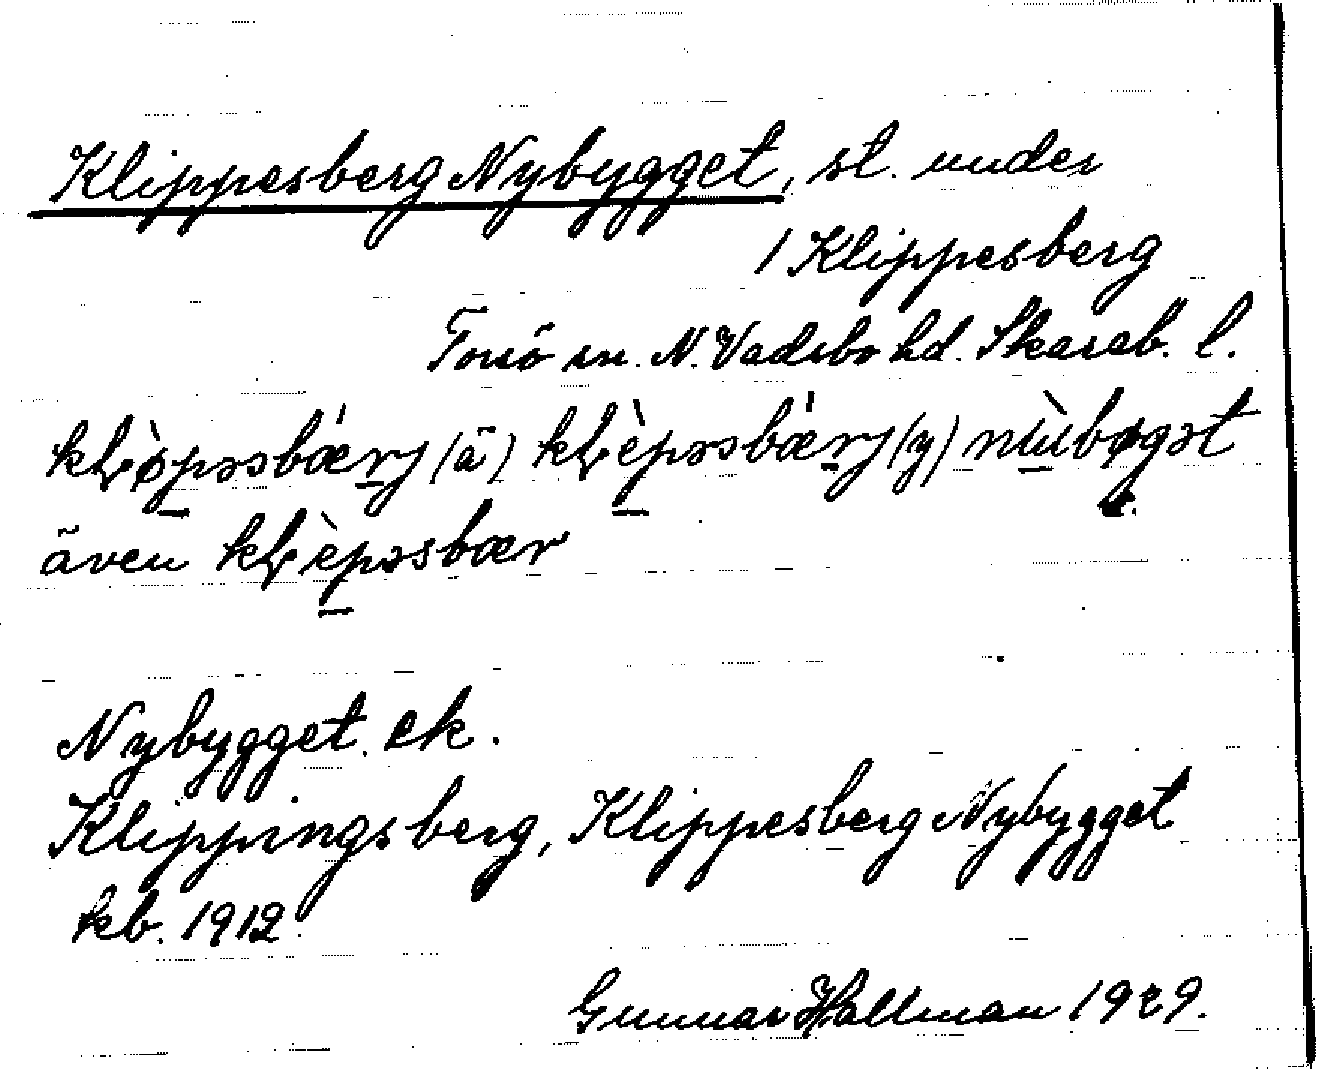 Klippesberg Nybygget, st. under
1 Klippesberg
Torsö sn. N. Vadsbo hd. Skarab. l.
(ä) (y)
även
Nybygget. ek.
Klippingsberg, Klippesberg Nybygget
kb. 1912.
Gunnar Hallman 1929.